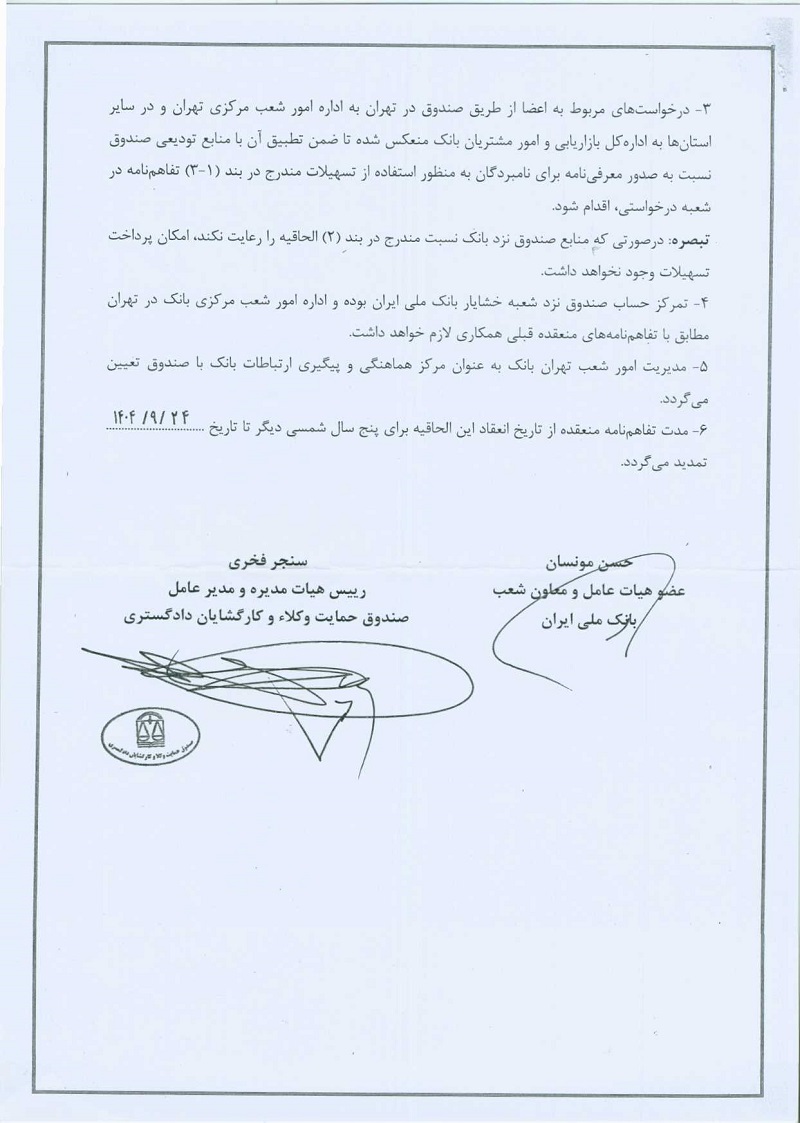 ۳- درخواست‌های مربوط به اعضا از طریق صندوق در تهران به اداره امور شعب مرکزی تهران و در سایر
استان‌ها به اداره‌کل بازاریابی و امور مشتریان بانک منعکس شده تا ضمن تطبیق آن با منابع تودیعی صندوق
نسبت به صدور معرفی‌نامه برای نامبردگان به منظور استفاده از تسهیلات مندرج در بند (۱-۳) تفاهم‌نامه در
شعبه درخواستی، اقدام شود.
تبصره: درصورتی که منابع صندوق نزد بانک نسبت مندرج در بند (۲) الحاقیه را رعایت نکند، امکان پرداخت
تسهیلات وجود نخواهد داشت.
۴- تمرکز حساب صندوق نزد شعبه خشایار بانک ملی ایران بوده و اداره امور شعب مرکزی بانک در تهران
مطابق با تفاهم‌نامه‌های منعقده قبلی همکاری لازم خواهد داشت.
۵- مدیریت امور شعب تهران بانک به عنوان مرکز هماهنگی و پیگیری ارتباطات بانک با صندوق تعیین
می‌گردد.
۶- مدت تفاهم‌نامه منعقده از تاریخ انعقاد این الحاقیه برای پنج سال شمسی دیگر تا تاریخ ۱۴۰۴/۹/۲۴
تمدید می‌گردد.
حسن مونسان
عضو هیات عامل و معاون شعب
بانک ملی ایران
سنجر فخری
رییس هیات مدیره و مدیر عامل
صندوق حمایت وکلاء و کارگشایان دادگستری
صندوق حمایت وکلا و کارگشایان دادگستری